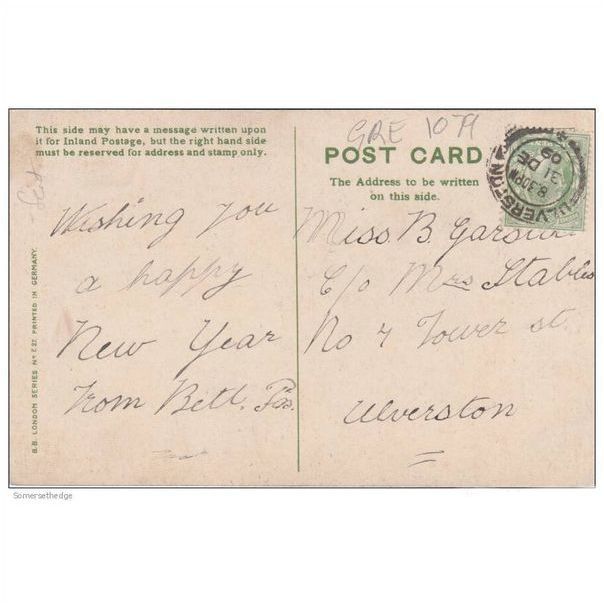 This side may have a message written upon
it for Inland Postage, but the right hand side
must be reserved for address and stamp only.
Wishing you
a happy
New Year
From Bell.
B.B. LONDON SERIES No E 27. PRINTED IN GERMANY.
GRE 1079
POST CARD
The Address to be written
on this side.
Miss B.
C/o Mrs Stables
No 4 Tower st.
Ulverston
ULVERSTON
8.30PM
31 DE
09
Somersethedge